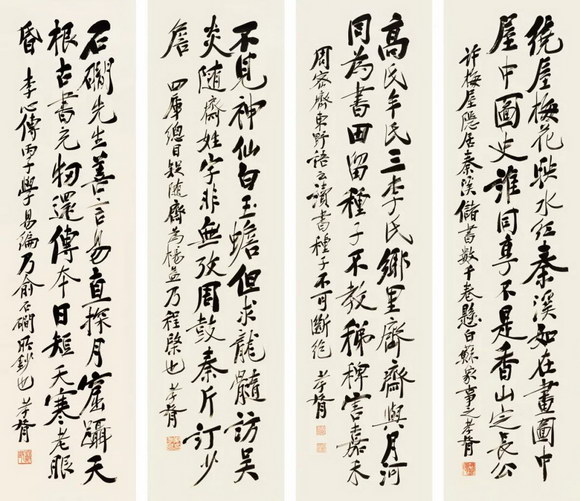 繞屋梅花暎水紅秦溪如在畫圖中
屋中圖史誰同享不是香山定長公
許梅屋隱居秦溪儲書數千卷懸白蘇家事之 孝胥
高氏牟氏三李氏鄉里齊齊與月河
同為書田留種子不教稊稗害嘉禾
周密齊東野語云讀書種子不可斷絕 孝胥
不見神仙白玉蟾但求龍髓訪吳
炎隨齋姓字非無攷周鼓秦斤訂少
詹 四庫總目誤隨齋為楊益乃程棨也 孝胥
石澗先生善言易直探月窟躡天
根古書充牣還傳本日短天寒老眼
昏 李心傳丙子學易編乃俞石澗所鈔也 孝胥